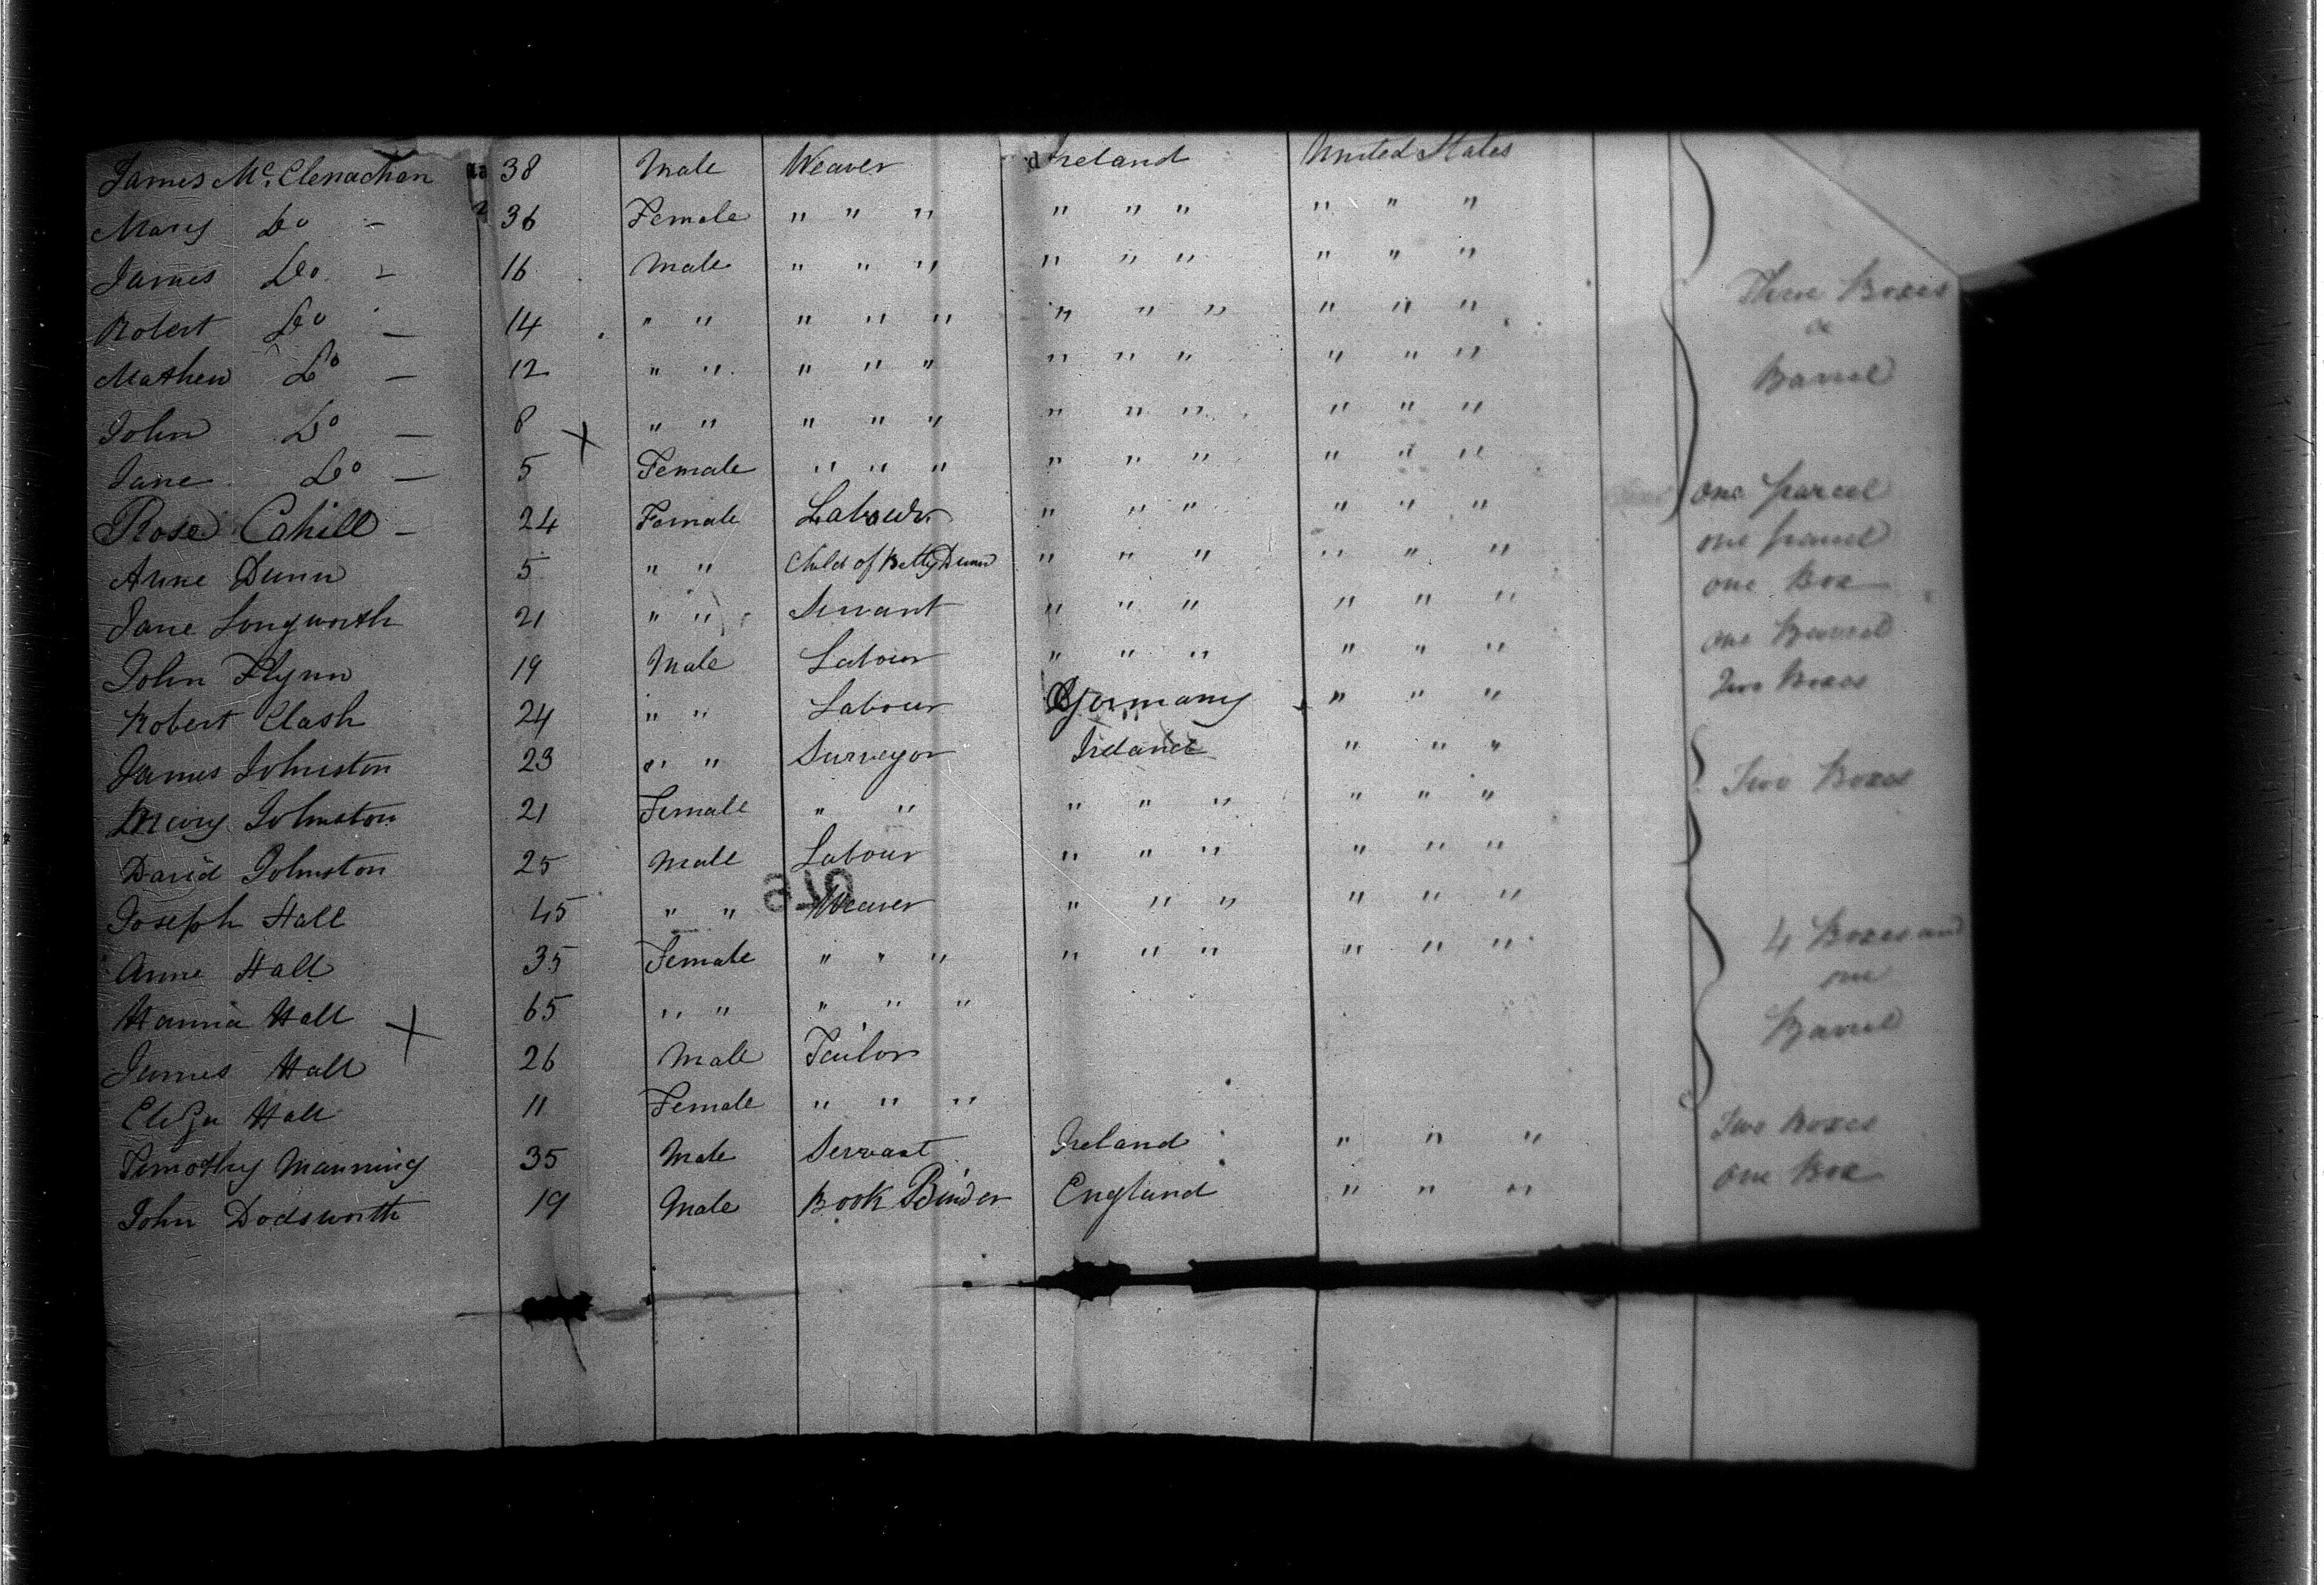 James McClenachan 38 Male Weaver Ireland United States
Mary Do - 36 Female " " " " " " " " "
James Do - 16 Male " " " " " " " " " Three Boxes
Robert Do - 14 " " " " " " " " " " "
Mathew Do - 12 " " " " " " " " " " " Barrel
John Do - 8 " " " " " " " " " " "
Jane Do - 5 Female " " " " " " " " "
Rose Cahill - 24 Female Labour " " " " " " one parcel
Anne Dunn 5 " " Child of Betty Dunn " " " " " " one parcel
Jane Longworth 21 " " Servant " " " " " " one Box
John Flynn 19 Male Labour " " " " " " one Barrel
Robert Clash 24 " " Labour Germany " " " Two Boxes
James Johnston 23 " " Surveyor Ireland " " "
Mary Johnston 21 Female " " " " " " " " Two Boxes
David Johnston 25 Male Labour " " " " " "
Joseph Hall 45 " " Weaver " " " " " "
Anne Hall 35 Female " " " " " " " " " 4 Boxes and
Hanna Hall 65 " " " " " one
James Hall 26 Male Tailor Barrel
Eliza Hall 11 Female " " "
Timothy Manning 35 Male Servant Ireland " " " Two Boxes
John Dodsworth 19 Male Book Binder England " " " one Box